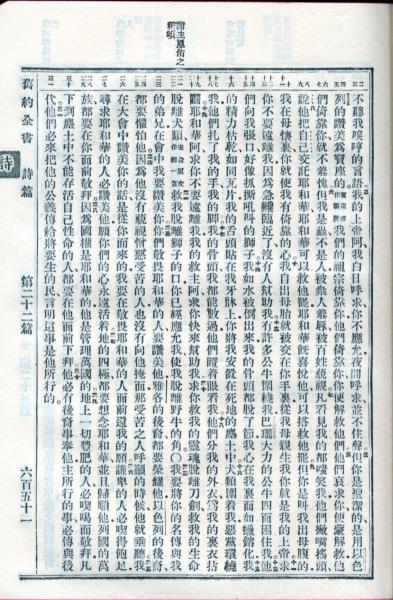 不聽我唉哼的言語我的上帝阿我白日呼求你不應允夜間呼求並不住聲但你是聖潔的是用以色
列的讚美爲寶座的我們的祖宗倚靠你他們倚靠你你便解救他們他們哀求你便蒙解救
他們倚靠你就不羞愧但我是蟲不是人被衆人羞辱被百姓藐視凡看見我的都嗤笑我他們撇嘴搖頭
說他把自己交託耶和華耶和華可以救他罷耶和華旣喜悅他可以搭救他罷但你是叫我出母腹的
我在母懷裏你就使我有倚靠的心我自出母胎就被交在你手裏從我母親生我你就是我的上帝求
你不要遠離我因爲急難臨近了沒有人幫助我有許多公牛圍繞我巴珊大力的公牛四面困住我他
們向我張口好像抓撕吼叫的獅子我如水被倒出來我的骨頭都脫了節我心在我裏面如蠟鎔化我
的精力枯乾如同瓦片我的舌頭貼在我牙牀上你將我安置在死地的塵土中犬類圍着我惡黨環繞
我他們扎了我的手我的脚我的骨頭我都能數過他們瞪着眼看我他們分我的外衣爲我的裏衣拈
鬮耶和華阿求你不要遠離我我的救主阿求你快來幫助我求你救我的靈魂脫離刀劍救我的生命
脫離犬類救我脫離獅子的口你已經應允我使我脫離野牛的角我要將你的名傳與我
的弟兄在會中我要讚美你你們敬畏耶和華的人要讚美他雅各的後裔都要榮耀他以色列的後裔
都要懼怕他因爲他沒有藐視憎惡受苦的人也沒有向他掩面那受苦之人呼籲的時候他就垂聽我
在大會中讚美你的話是從你而來的我要在敬畏耶和華的人面前還我的願謙卑的人必喫得飽足
尋求耶和華的人必讚美他願你們的心永遠活着地的四極都要想念耶和華並且歸順他列國的萬
族都要在你面前敬拜因爲國權是耶和華的他是管理萬國的地上一切豐肥的人必喫喝而敬拜凡
下到塵土中不能存活自己性命的人都要在他面前下拜他必有後裔事奉他主所行的事必傳與後
代他們必來把他的公義傳給將要生的民言明這事是他所行的
舊約全書 詩篇 第二十二篇 六百五十一
詩